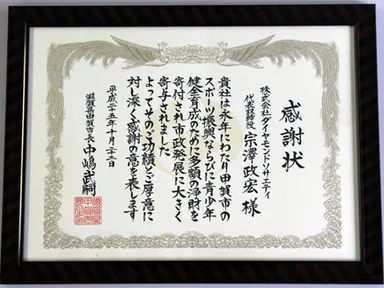 感謝状
株式会社ダイヤモンドソサエティ
代表取締役 宗澤政宏 様
貴社は永年にわたり甲賀市の
スポーツ振興ならびに青少年
健全育成のために多額の浄財を
寄付され市政発展に大きく
寄与されました
よってそのご功績とご厚意に
対し深く感謝の意を表します
平成二十五年十月二十三日
滋賀県甲賀市長 中嶋武嗣